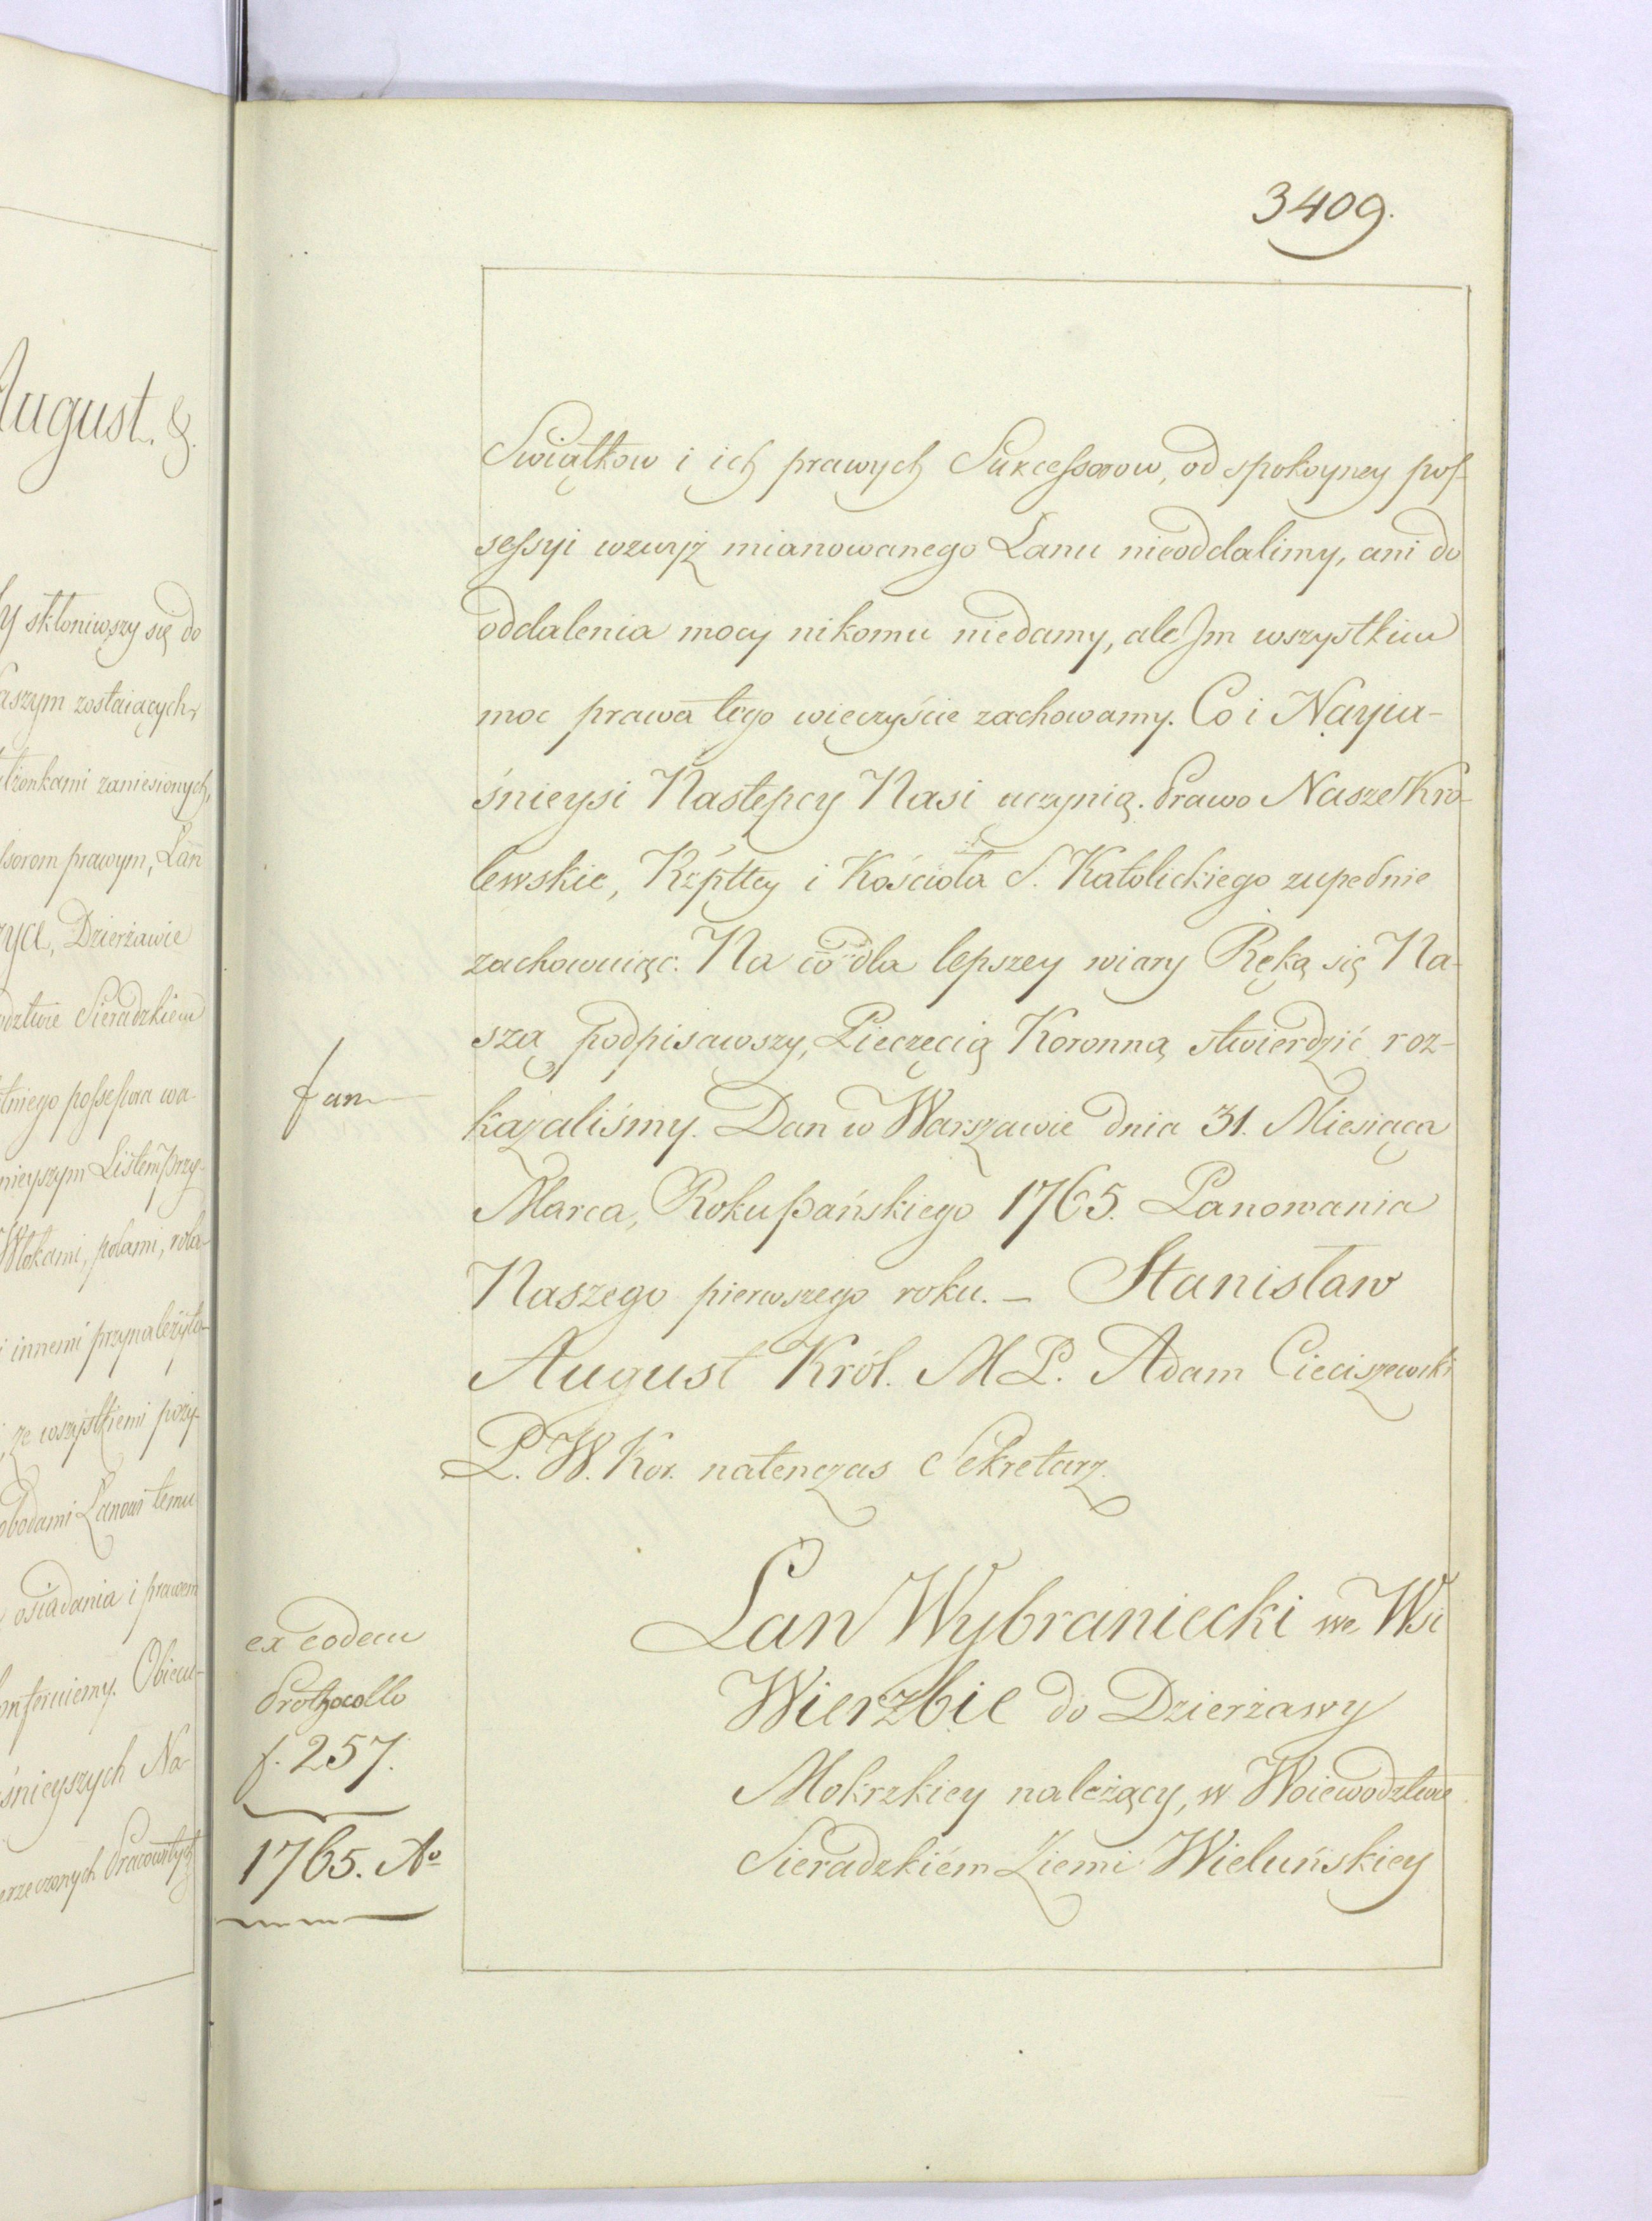 3409.
Swiątkow i ich prawych Sukcessorow, od spokoyney pos-
sessyi wzwyż mianowanego Łanu nieoddalimy, ani do
oddalenia mocy nikomu niedamy, ale Jm wszystkim
moc prawa tego wieczyście zachowamy. Co i Nayia-
śnieysi Następcy Nasi uczynią. Prawo Nasze Kró-
lewskie, Rzpltey i Kościoła S. Katolickiego zupełnie
zachowuiąc. Na co dla lepszey wiary Ręką się Na-
szą podpisawszy, Pieczęcią Koronną stwierdzić roz-
kazaliśmy. Dan w Warszawie dnia 31. Miesiąca
Marca, Roku Pańskiego 1765. Panowania
Naszego pierwszego roku. – Stanisław
August Król. M P. Adam Cieciszewski
P. W. Kor. natenczas Sekretarz.
Łan Wybraniecki we Wsi
Wierzbie do Dzierżawy
Mokrzkiey należący, w Woiewodztwie
Sieradzkiém Ziemi Wieluńskiey
ex eodem
Prothocollo
f. 257.
1765. Ao
August. &.
skłoniwszy się do
zostaiących
zaniesionych,
prawym, Łan
Dzierżawie
Sieradzkiem
possessora wa-
Listem przy-
polami, rola-
i innemi przynależyto-
ze wszystkiemi poży-
Łanowi temu
osiadania i prawem
Obiecu-
Na-